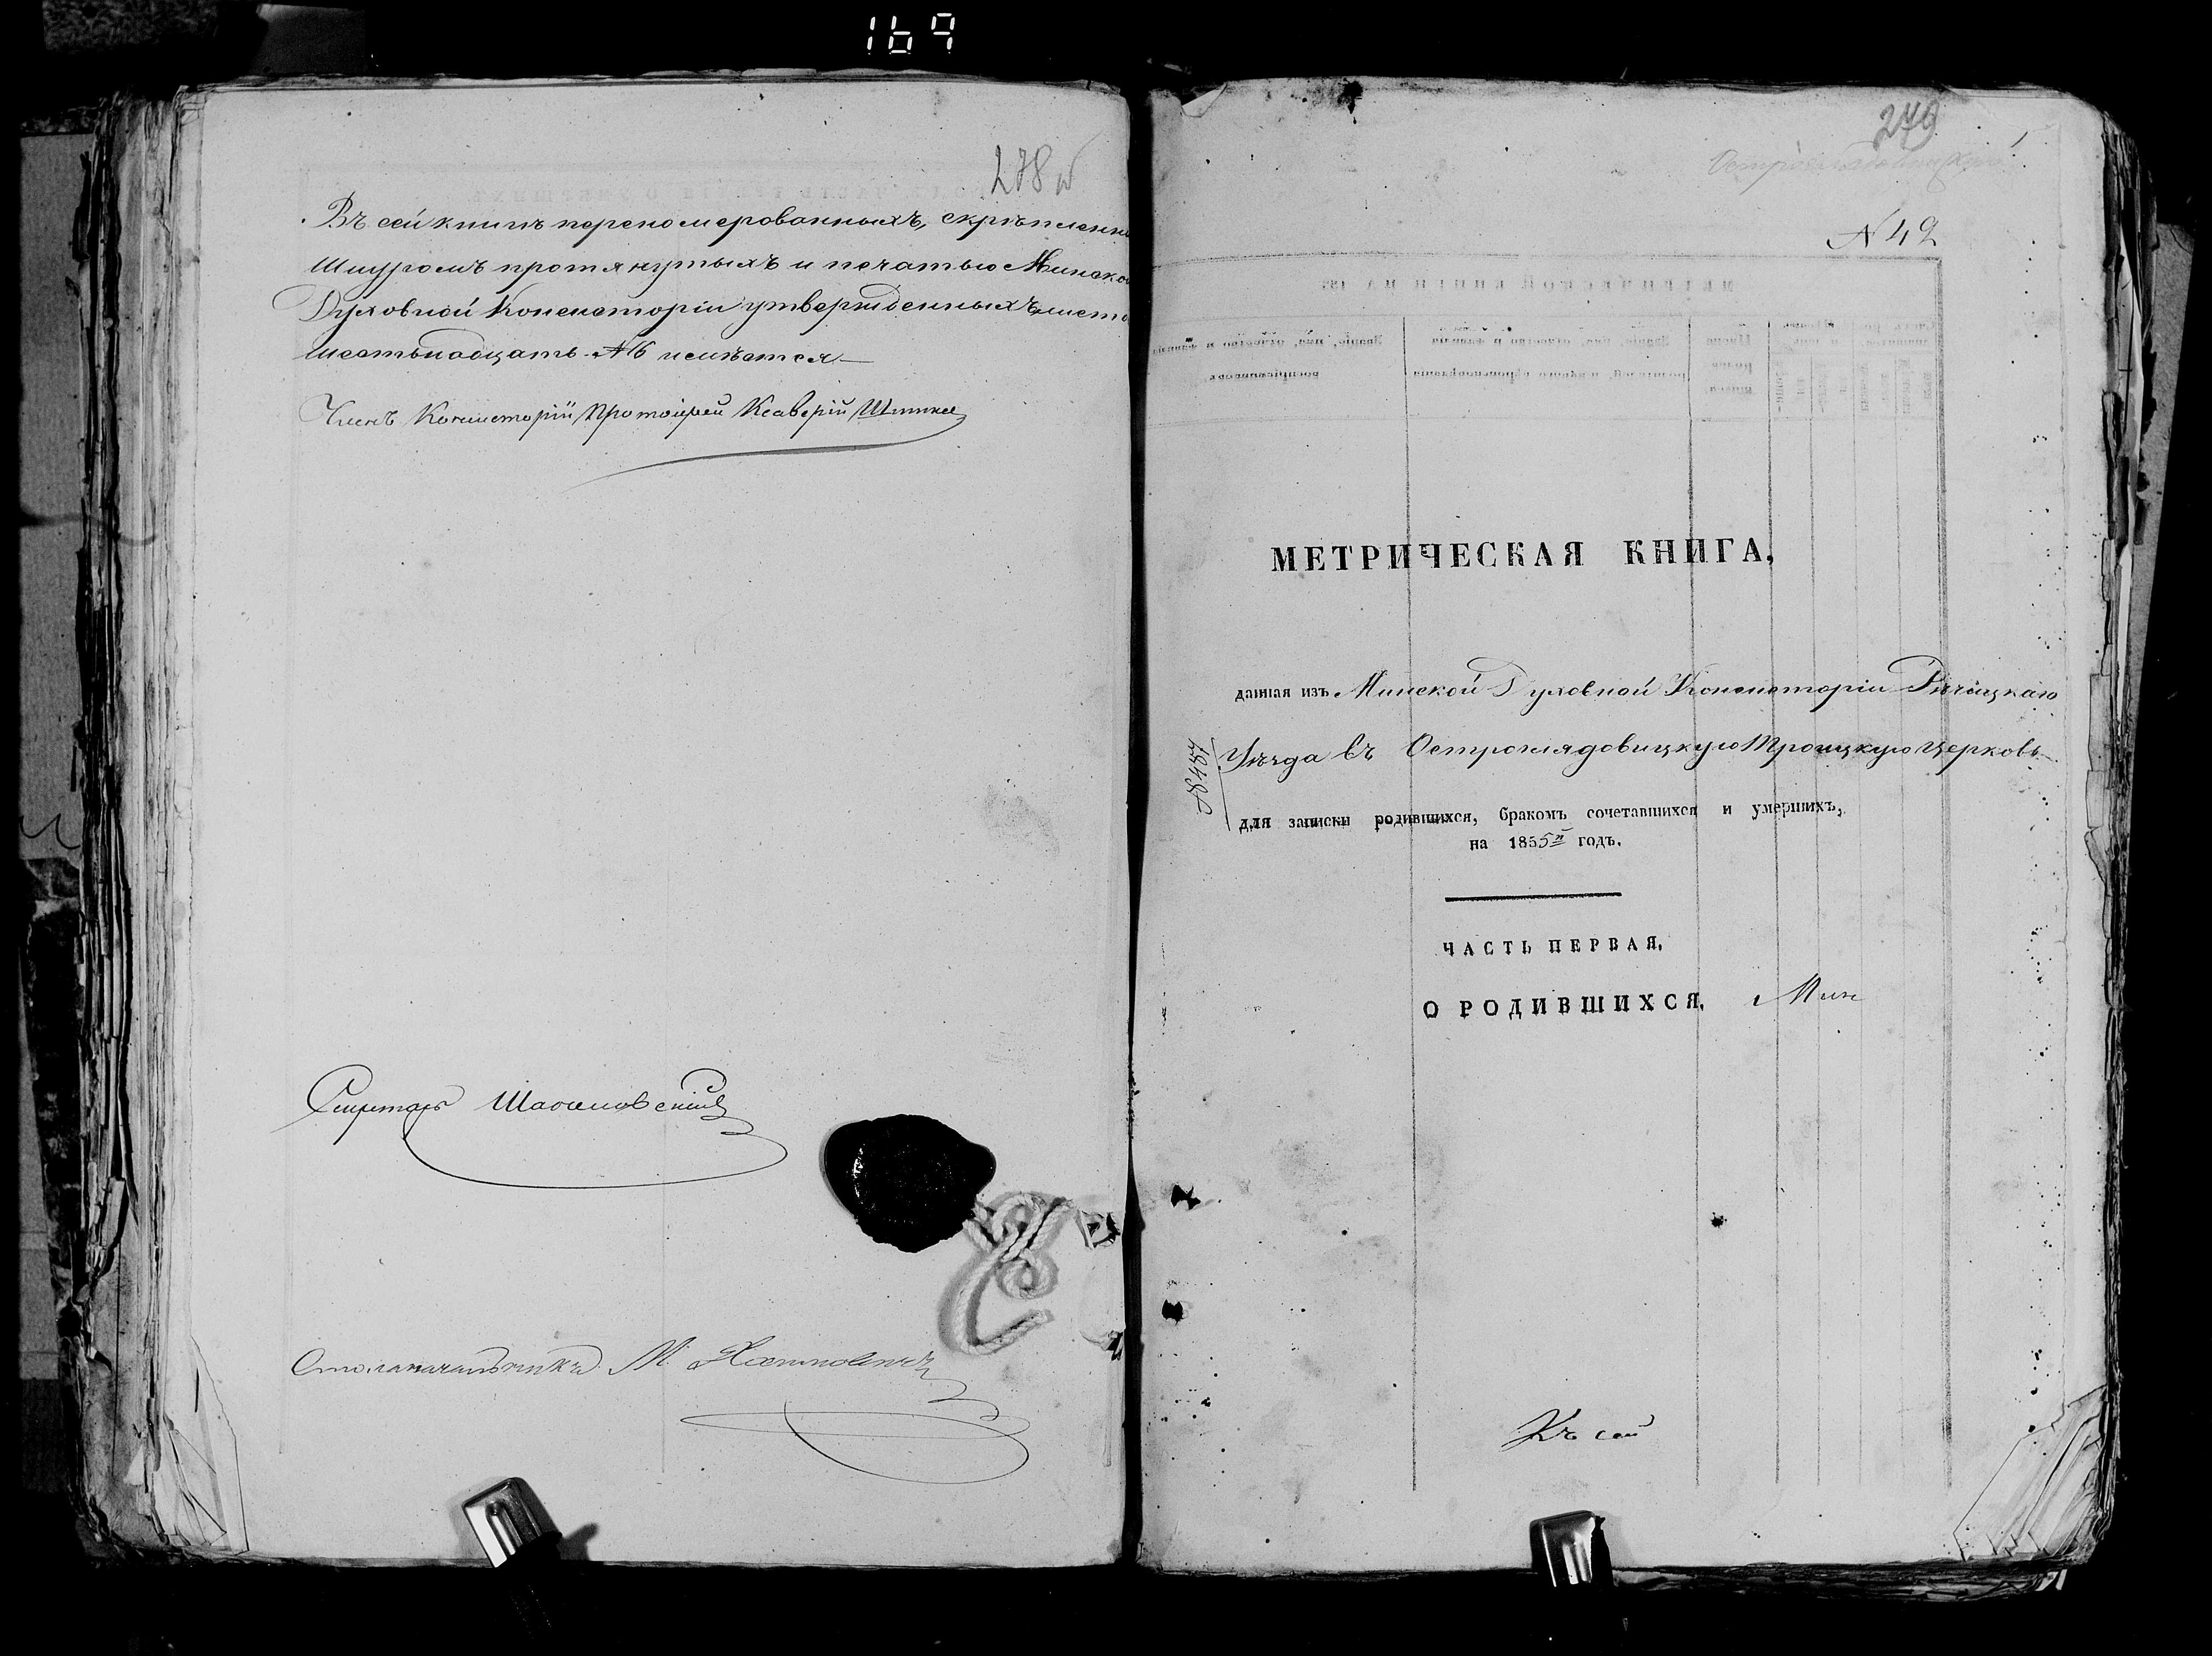 169
278 об
Въ сей книгѣ переномерованныхъ, скрѣпленн
Шнуромъ протянутыхъ и печатью Минской
Духовной Консисторіи утвержденныхъ листо
шестьнадцать №16 имѣется
Членъ Консисторіи Протоіерей Ксаверій
Секретарь
Столоначальникъ М.
279
№ 42
МЕТРИЧЕСКАЯ КНИГА,
данная изъ Минской Духовной Консисторіи Рѣчицкаго
Уѣзда въ Острогядовицкую Троицкую церковь
№8487
для записки родившихся, бракомъ сочетавшихся и умершихъ,
на 1855й годъ.
ЧАСТЬ ПЕРВАЯ,
О РОДИВШИХСЯ, Мин
Къ сей